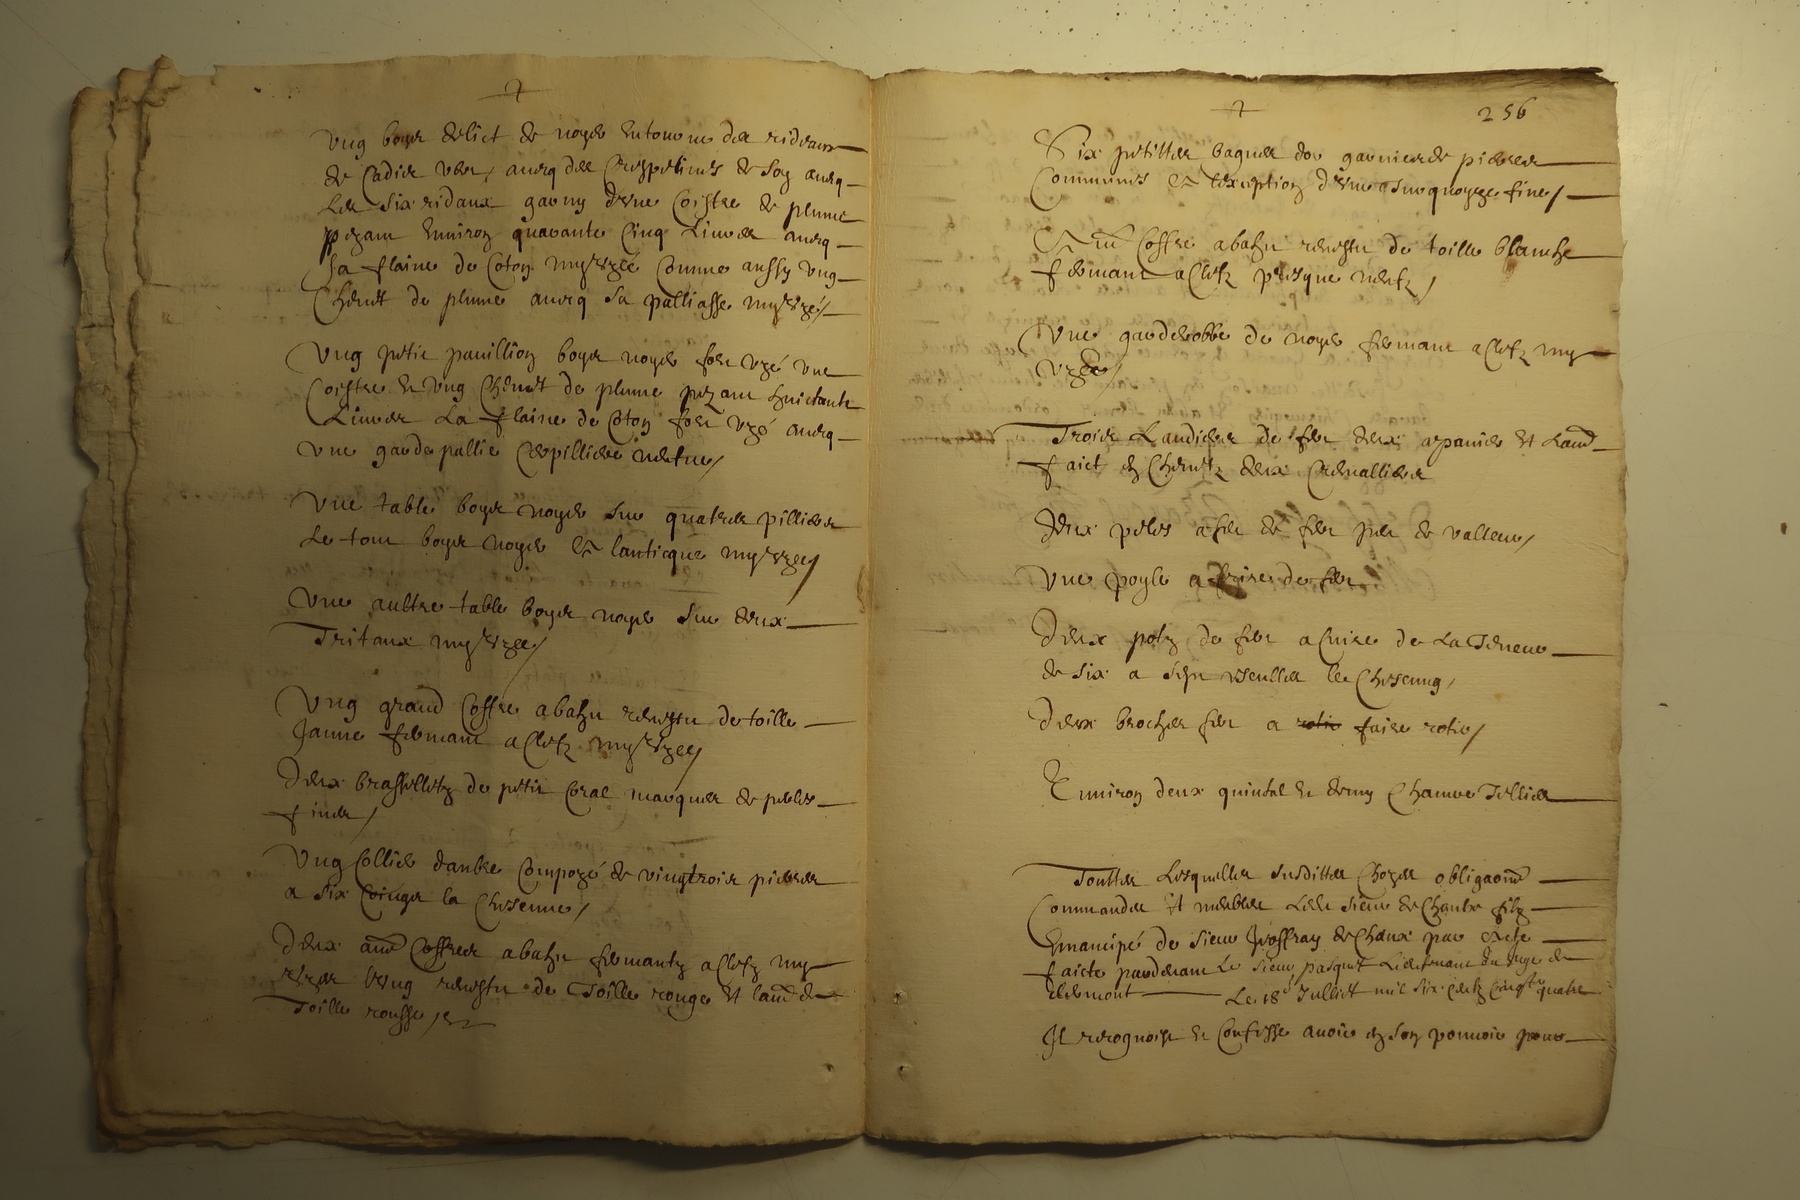 Vng boys de lict de noyer entourne des rideaux
de Cadis vert, aueq des Crespelines de soy aueq
les six ridaux garny d'vne Coistre de plume
pezant enuiron quarante Cinq Liures aueq
sa flaine de Coton my vzée Comme aussy vng
Cheuet de plume aueq sa palliasse my vzé/
Vng petit pauillion boys noyer fort vzé vne
Coistre et vng Cheuet de plume pezant huictante
Liures La flaine de Coton fort vzé aueq
vne garde pallie neufue/
Vne table boys noyer sur quatre pilliers
Le tour boys noyer a lanticque my vzee/
Vne aultre table boys noyer sur deux
Tritaux my vzee/
Vng grand Coffre a bahu reuestu de toille
Jaune fermant a Clefz my vzee/
Deux brasselletz de petit Coral marquer de perles
fines/
Vng Collier d'anbre Compozé de vingtroix pierres
a six la
Deux aues Coffres a bahu fermantz a Clefz my
vzez l'vng reuestu de Toille rouge et lautre de
Toille rousse
256
Six petittes bagues dor garnies de pierres
Communes a lexception d'vne Turquoyze fine/
Vn Coffre a bahu reuestu de toille blanche
fermant a Clefz presque neufz/
Vne garderobbe de noyer fermant a Clefz my
vzée/
Troix Landiers de fer deux a panier et Lautre
faict en Cheuetz deux Cremalliers
Deux peles a feu de fer peu de valleur/
Vne poyle a frire de fer
Deux potz de fer a Cuire de La Teneur
de six a sept le Chescung/
Deux broches fer a rotir faire rotir/
Enuiron deux quintal et demy Chanure
Touttes Lesquelles susdittes Chozes
et meubles Ledit sieur de Chaux filz
Emancipé de sieur Joffray de Chaux par Acte
faicte pardeuant Le sieur pasquet Lieutenant du Juge de
Clermont Le 18e Juillet mil six Centz Cinqte quatre
Il recognoist et Confesse auoir en son pouuoir pour